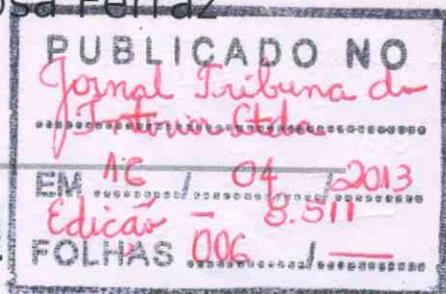 osa Ferraz
PUBLICADO NO
Jornal Tribuna do
Interior Ltda
EM 16 / 04 / 2013
Edição - 8.511
FOLHAS 006 / —